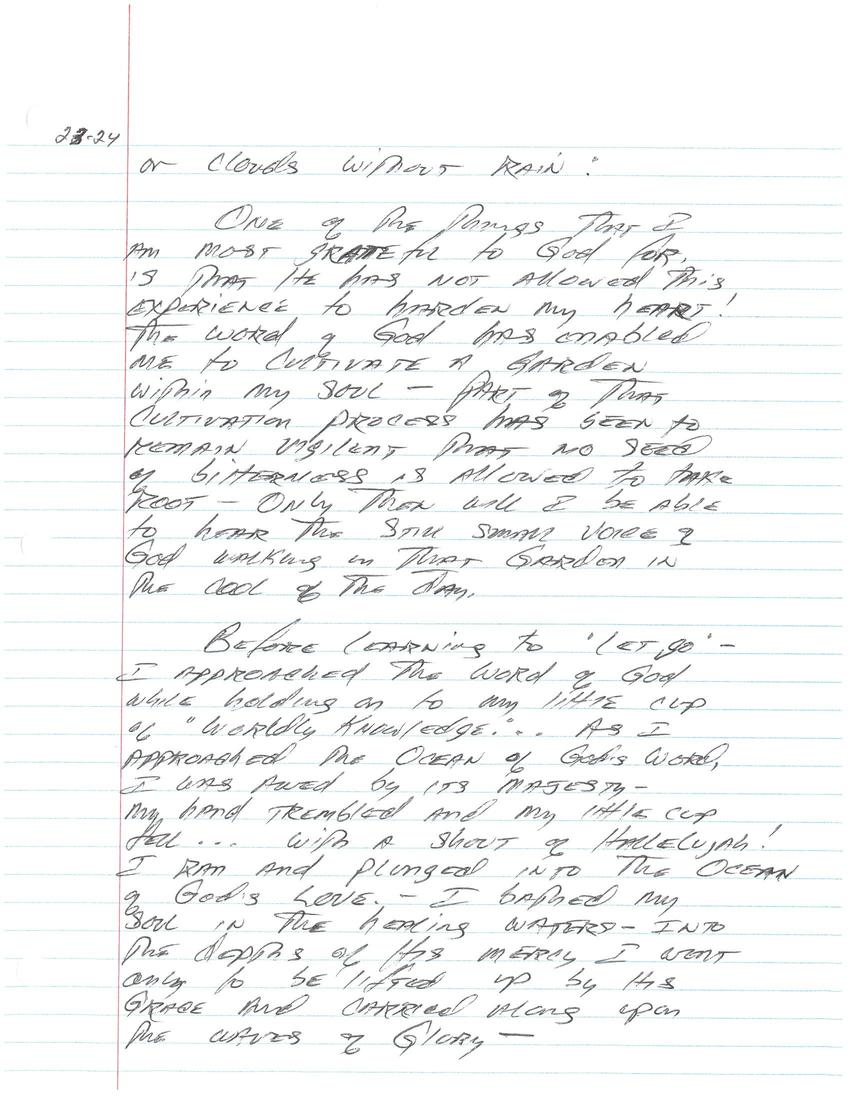 23-24
or Clouds without Rain:
One of the things that I
am most grateful to God for,
is that He has not allowed this
experience to harden my heart!
The word of God has enabled
me to cultivate a garden
within my soul — part of that
cultivation process has been to
remain vigilent that no seed
of bitterness is allowed to take
root — Only then will I be able
to hear the still small voice of
God walking in that Garden in
the cool of the day.
Before learning to "let go" —
I approached the Word of God
while holding on to my little cup
of "Worldly Knowledge."... As I
approached the Ocean of God's Word,
I was awed by its majesty —
my hand trembled and my little cup
fell... with a shout of Hallelujah!
I ran and plunged into the Ocean
of God's Love. — I bathed my
soul in the healing waters — Into
the depths of His mercy I went
only to be lifted up by His
Grace and carried along upon
the waves of Glory —